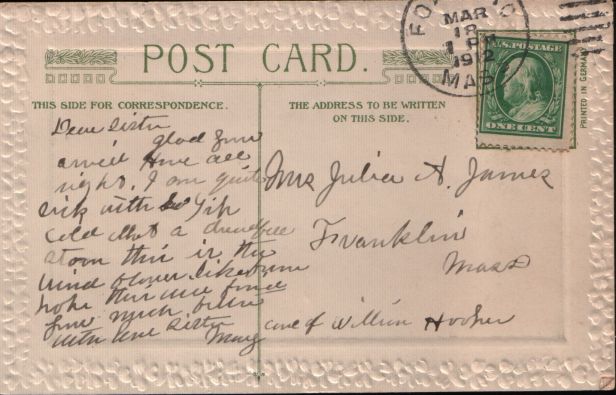 POST CARD.
FO
MAR
18
1 PM
1912
MAS
U.S. POSTAGE
ONE CENT
PRINTED IN GERMANY
THIS SIDE FOR CORRESPONDENCE.
THE ADDRESS TO BE WRITTEN
ON THIS SIDE.
Dear Sister
glad you
all
right. I am quite
sick with
cold what a dreadful
storm this is the
wind blows like
hope this will find
you much
with love Sister
Mary
Mrs Julia A. James
Franklin
Mass
care of William Hooker